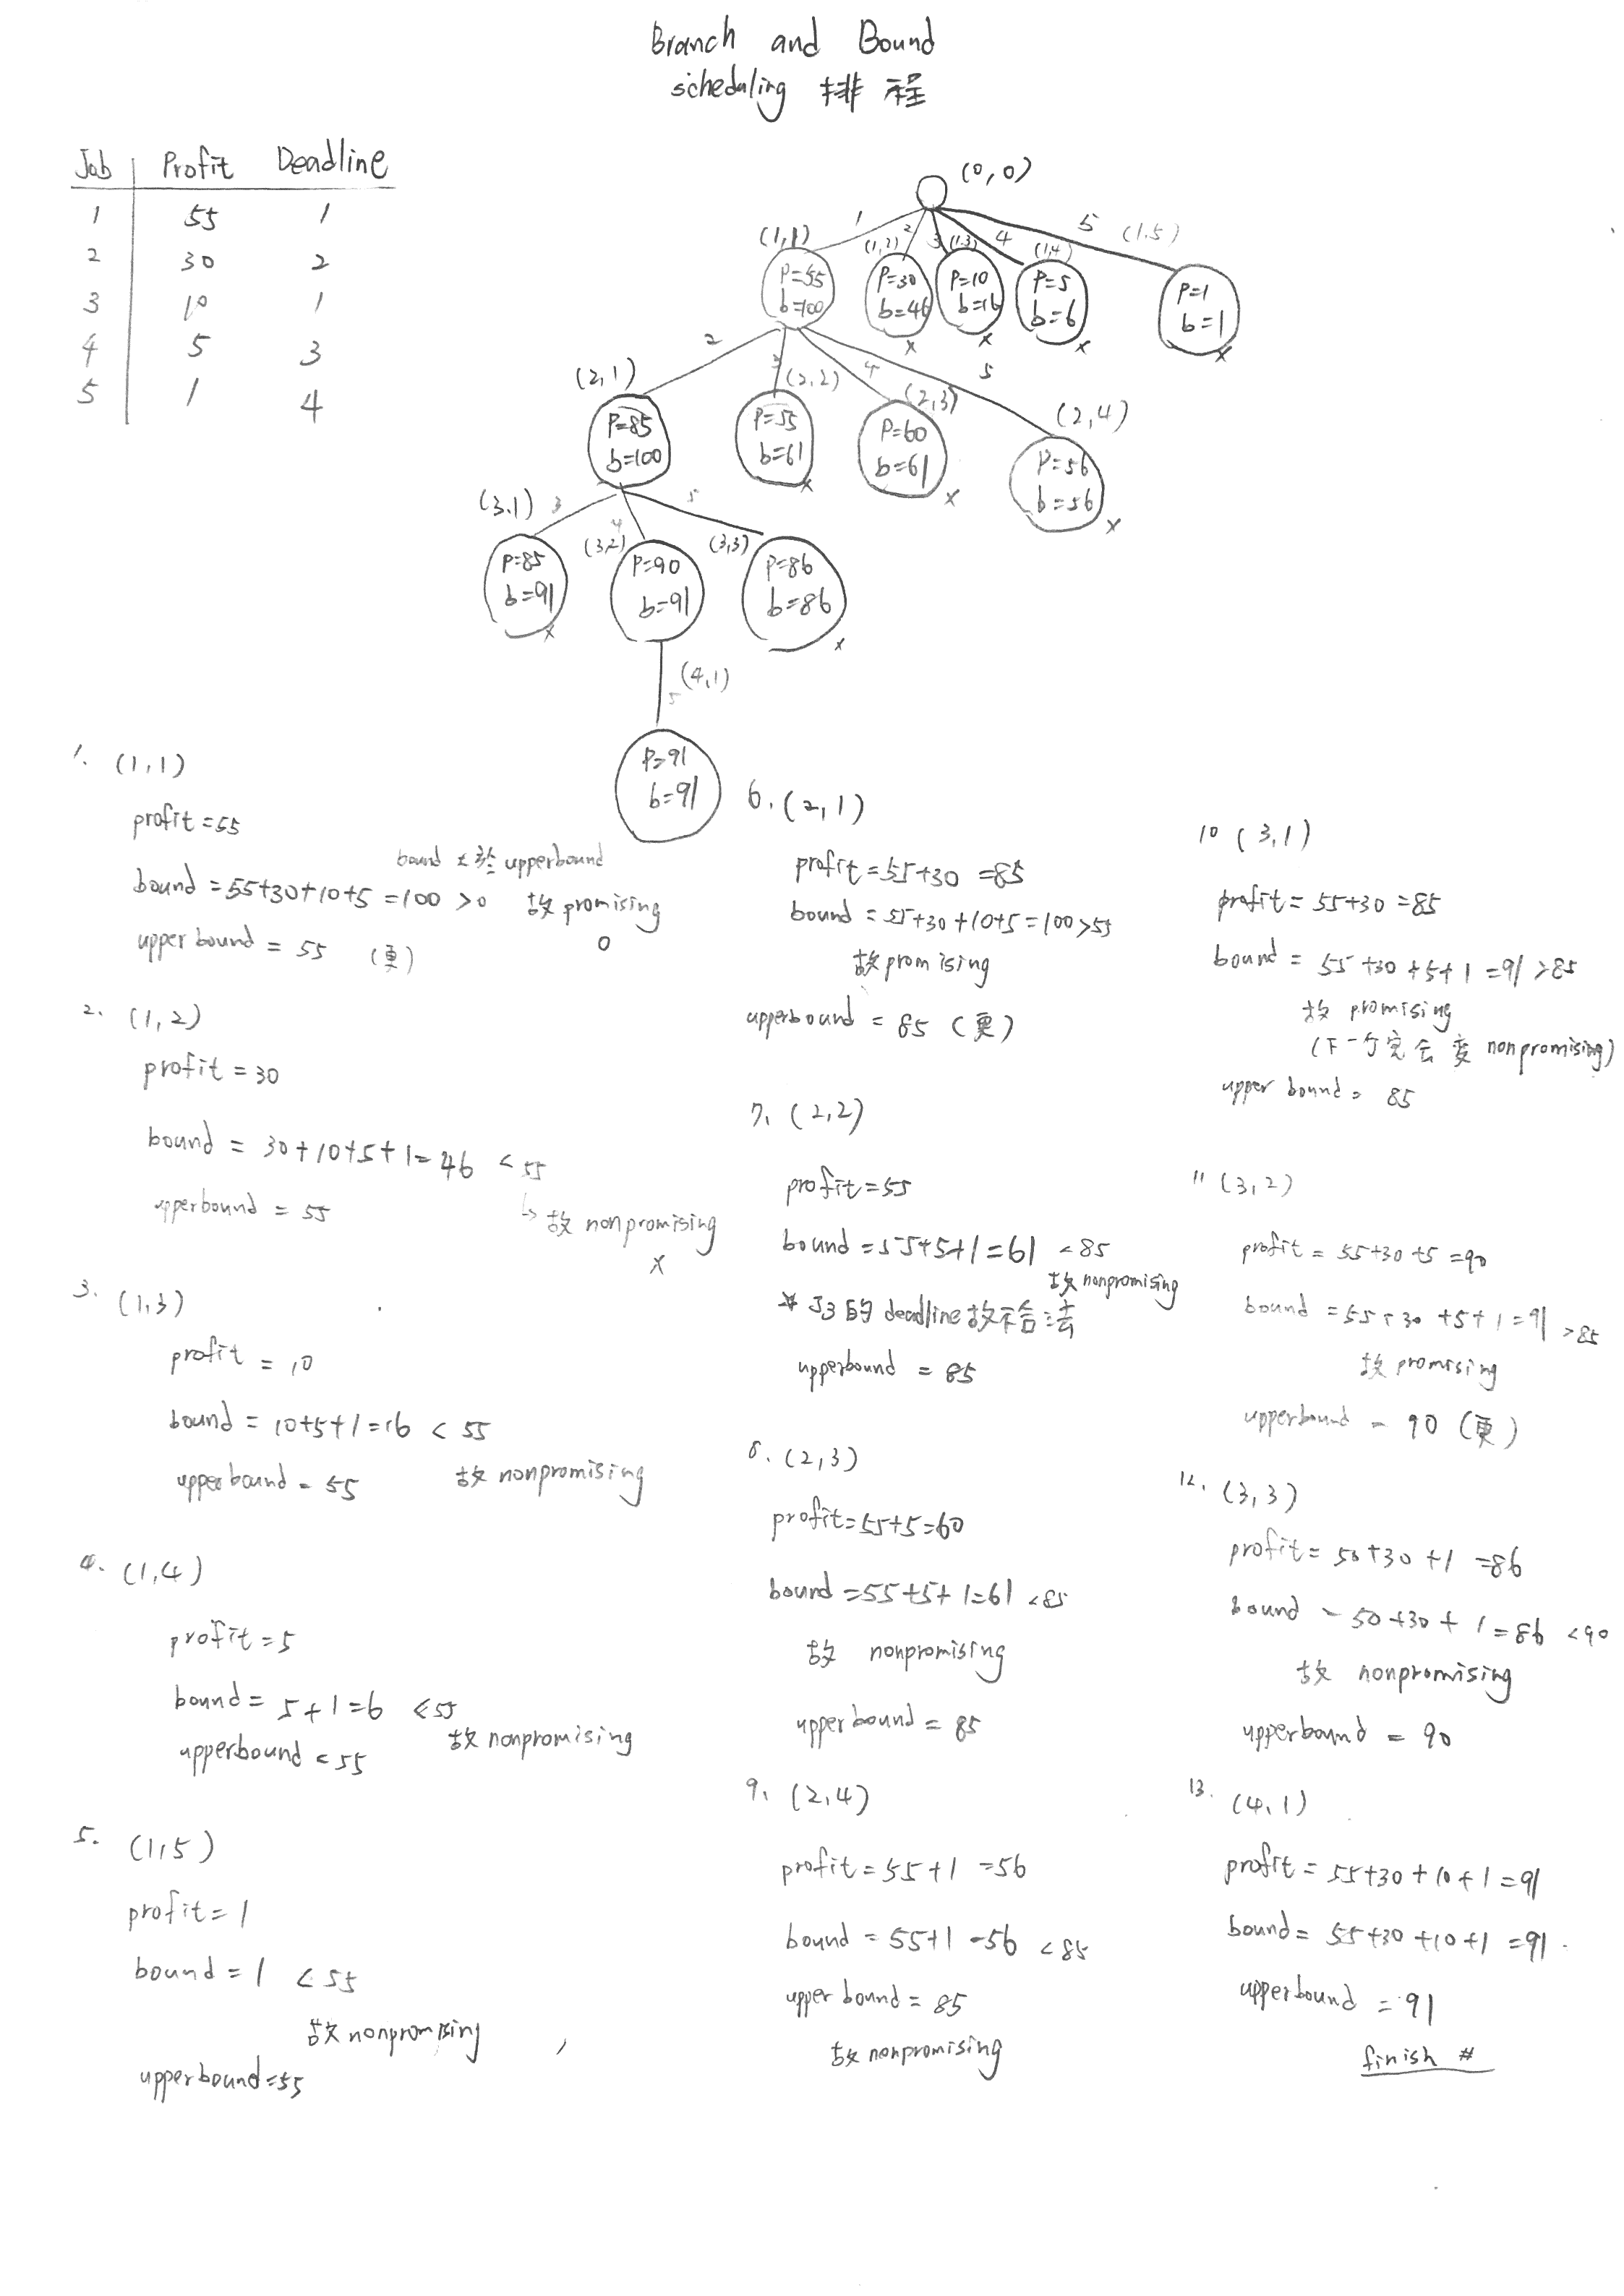 Branch and Bound
scheduling 排程
Job Profit Deadline
1 55 1
2 30 2
3 10 1
4 5 3
5 1 4
(0,0)
1 2 3 4 5
(1,1) (1,2) (1.3) (1,4) (1.5)
P=55 b=100
P=30 b=46 x
P=10 b=16 x
P=5 b=6 x
P=1 b=1 x
2 3 4 5
(2,1) (2,2) (2,3) (2,4)
P=85 b=100
P=55 b=61 x
P=60 b=61 x
P=56 b=56 x
3 4 5
(3.1) (3,2) (3,3)
P=85 b=91 x
P=90 b=91
P=86 b=86 x
5 (4,1)
P=91 b=91
1. (1,1)
profit=55
bound 大於 upperbound
bound =55+30+10+5=100 >0 故 promising
upper bound = 55 (更) O
2. (1,2)
profit = 30
bound = 30+10+5+1=46 < 55
upperbound = 55 ↳ 故 nonpromising
x
3. (1,3)
profit = 10
bound = 10+5+1=16 < 55
upperbound = 55 故 nonpromising
4. (1,4)
profit=5
bound= 5+1=6 <55
upperbound = 55 故 nonpromising
5. (1,5)
profit=1
bound=1 <55
故 nonpromising
upperbound=55
6. (2,1)
profit=55+30 =85
bound =55+30+10+5=100>55
故 promising
upperbound = 85 (更)
7. (2,2)
profit=55
bound =55+5+1=61 <85
故 nonpromising
☆ J3的deadline故不合法
upperbound = 85
8. (2,3)
profit=55+5=60
bound =55+5+1=61 <85
故 nonpromising
upperbound = 85
9. (2,4)
profit=55+1 =56
bound = 55+1 =56 <85
upper bound = 85
故 nonpromising
10 (3,1)
profit= 55+30 =85
bound = 55+30+5+1=91 >85
故 promising
(下一行完會變 nonpromising)
upper bound = 85
11 (3,2)
profit = 55+30+5=90
bound =55+30+5+1=91 >85
故 promising
upperbound = 90 (更)
12. (3,3)
profit= 50+30+1 =86
bound = 50+30+1=86 <90
故 nonpromising
upperbound = 90
13. (4,1)
profit= 55+30+10+1=91
bound= 55+30+10+1=91
upperbound = 91
finish #